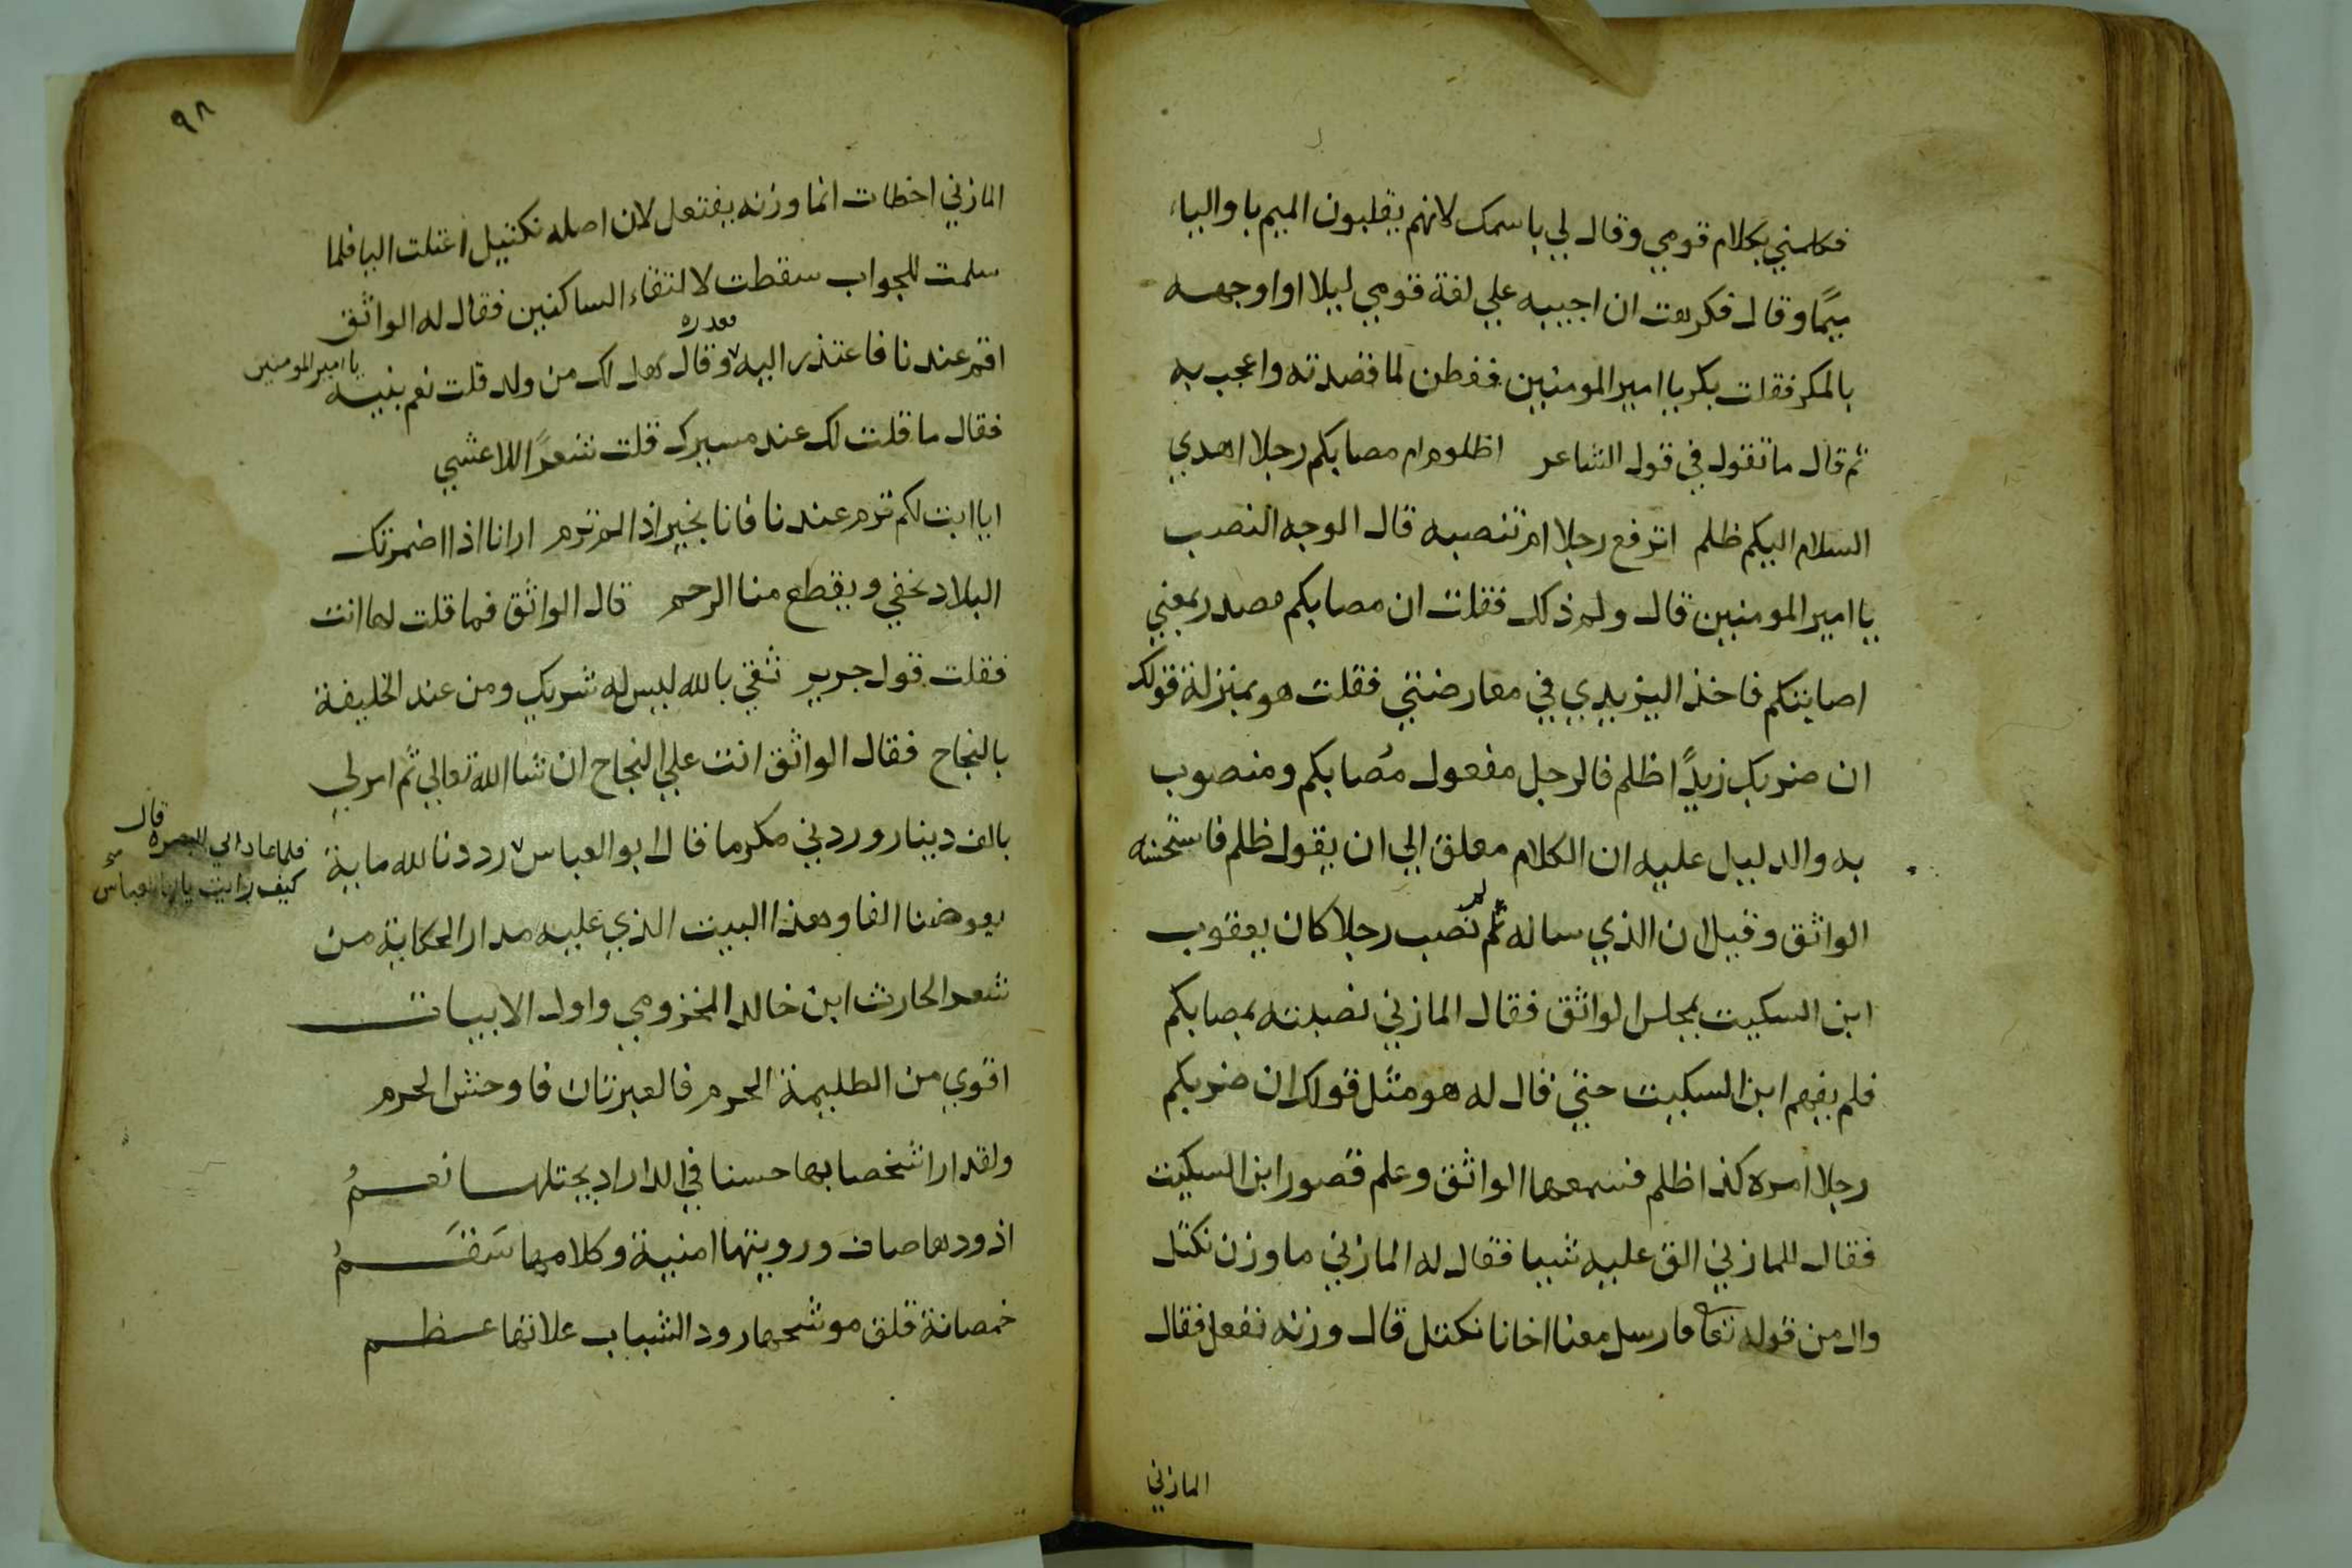 فكلمني بكلام قومي وقال لي باسمك لانهم يقلبون الميم با والباء
ميمًا وقال فكرهت ان اجيبه علي لغة قومي ليلا اواجهه
بالمكر فقلت بكر يا امير المومنين ففطن لما قصدته واعجب به
ثم قال ما تقول في قول الشاعر اظلوم ام مصابكم رجلا اهدي
السلام اليكم ظلم اترفع رجلا ام تنصبه قال الوجه النصب
يا امير المومنين قال ولم ذلك فقلت ان مصابكم مصدر بمعني
اصابتكم فاخذ اليزيدي في معارضتي فقلت هو بمنزلة قولك
ان ضربك زيدًا ظلم فالرجل مفعول مُصابكم ومنصوب
به والدليل عليه ان الكلام معلق الي ان يقول ظلم فاستحسنه
الواثق وقيل ان الذي ساله لم نصب رجلا كان يعقوب
ابن السكيت بمجلس الواثق فقال المازني نصبته بمصابكم
فلم يفهم ابن السكيت حتي قال له هو مثل قولك ان ضربكم
رجلا امره كذا ظلم فسمعها الواثق وعلم قصور ابن السكيت
فقال للمازني الق عليه شيا فقال له المازني ما وزن نكتل
وال من قوله تعا فارسل معنا اخانا نكتل قال وزنه نفعل فقال
المازني
٩٨
المازني اخطات انما وزنه يفتعل لان اصله نكتيل اعتلت اليا فلما
سلمت للجواب سقطت لالتقاء الساكنين فقال له الواثق
اقم عندنا فاعتذر اليه وقال هل لك من ولد قلت نعم بنيه
يا امير المومنين
فقال ما قلت لك عند مسيرك قلت شعرًا للاعشي
ايا ابت لكم ترم عندنا فانا بخير اذا لم ترم ارانا اذا اضمرتك
البلاد نخفي ويقطع منا الرحم قال الواثق فما قلت لها انت
فقلت قول جرير ثقي بالله ليس له شريك ومن عند الخليفة
بالنجاح فقال الواثق انت علي النجاح ان شا الله تعالي ثم امر لي
بالف دينار وردني مكرما قال ابو العباس رددنا لله ماية
فلما عاد الي البصره قال
كيف رايت يا ابا العباس
يعوضنا الفا وهذا البيت الذي عليه مدار الحكاية من
شعر الحارث ابن خالد المخزومي واول الابيات
اقوي من الطليمة الحرم فالعيرتان فاوحش الحرم
ولقد ارا شخصا بها حسنا في الدار اد يحتلها نعمُ
اذ ودها صاف ورويتها امنية وكلامها سَقَمُ
خمصانة قلق موشحها رود الشباب علا تها عظم